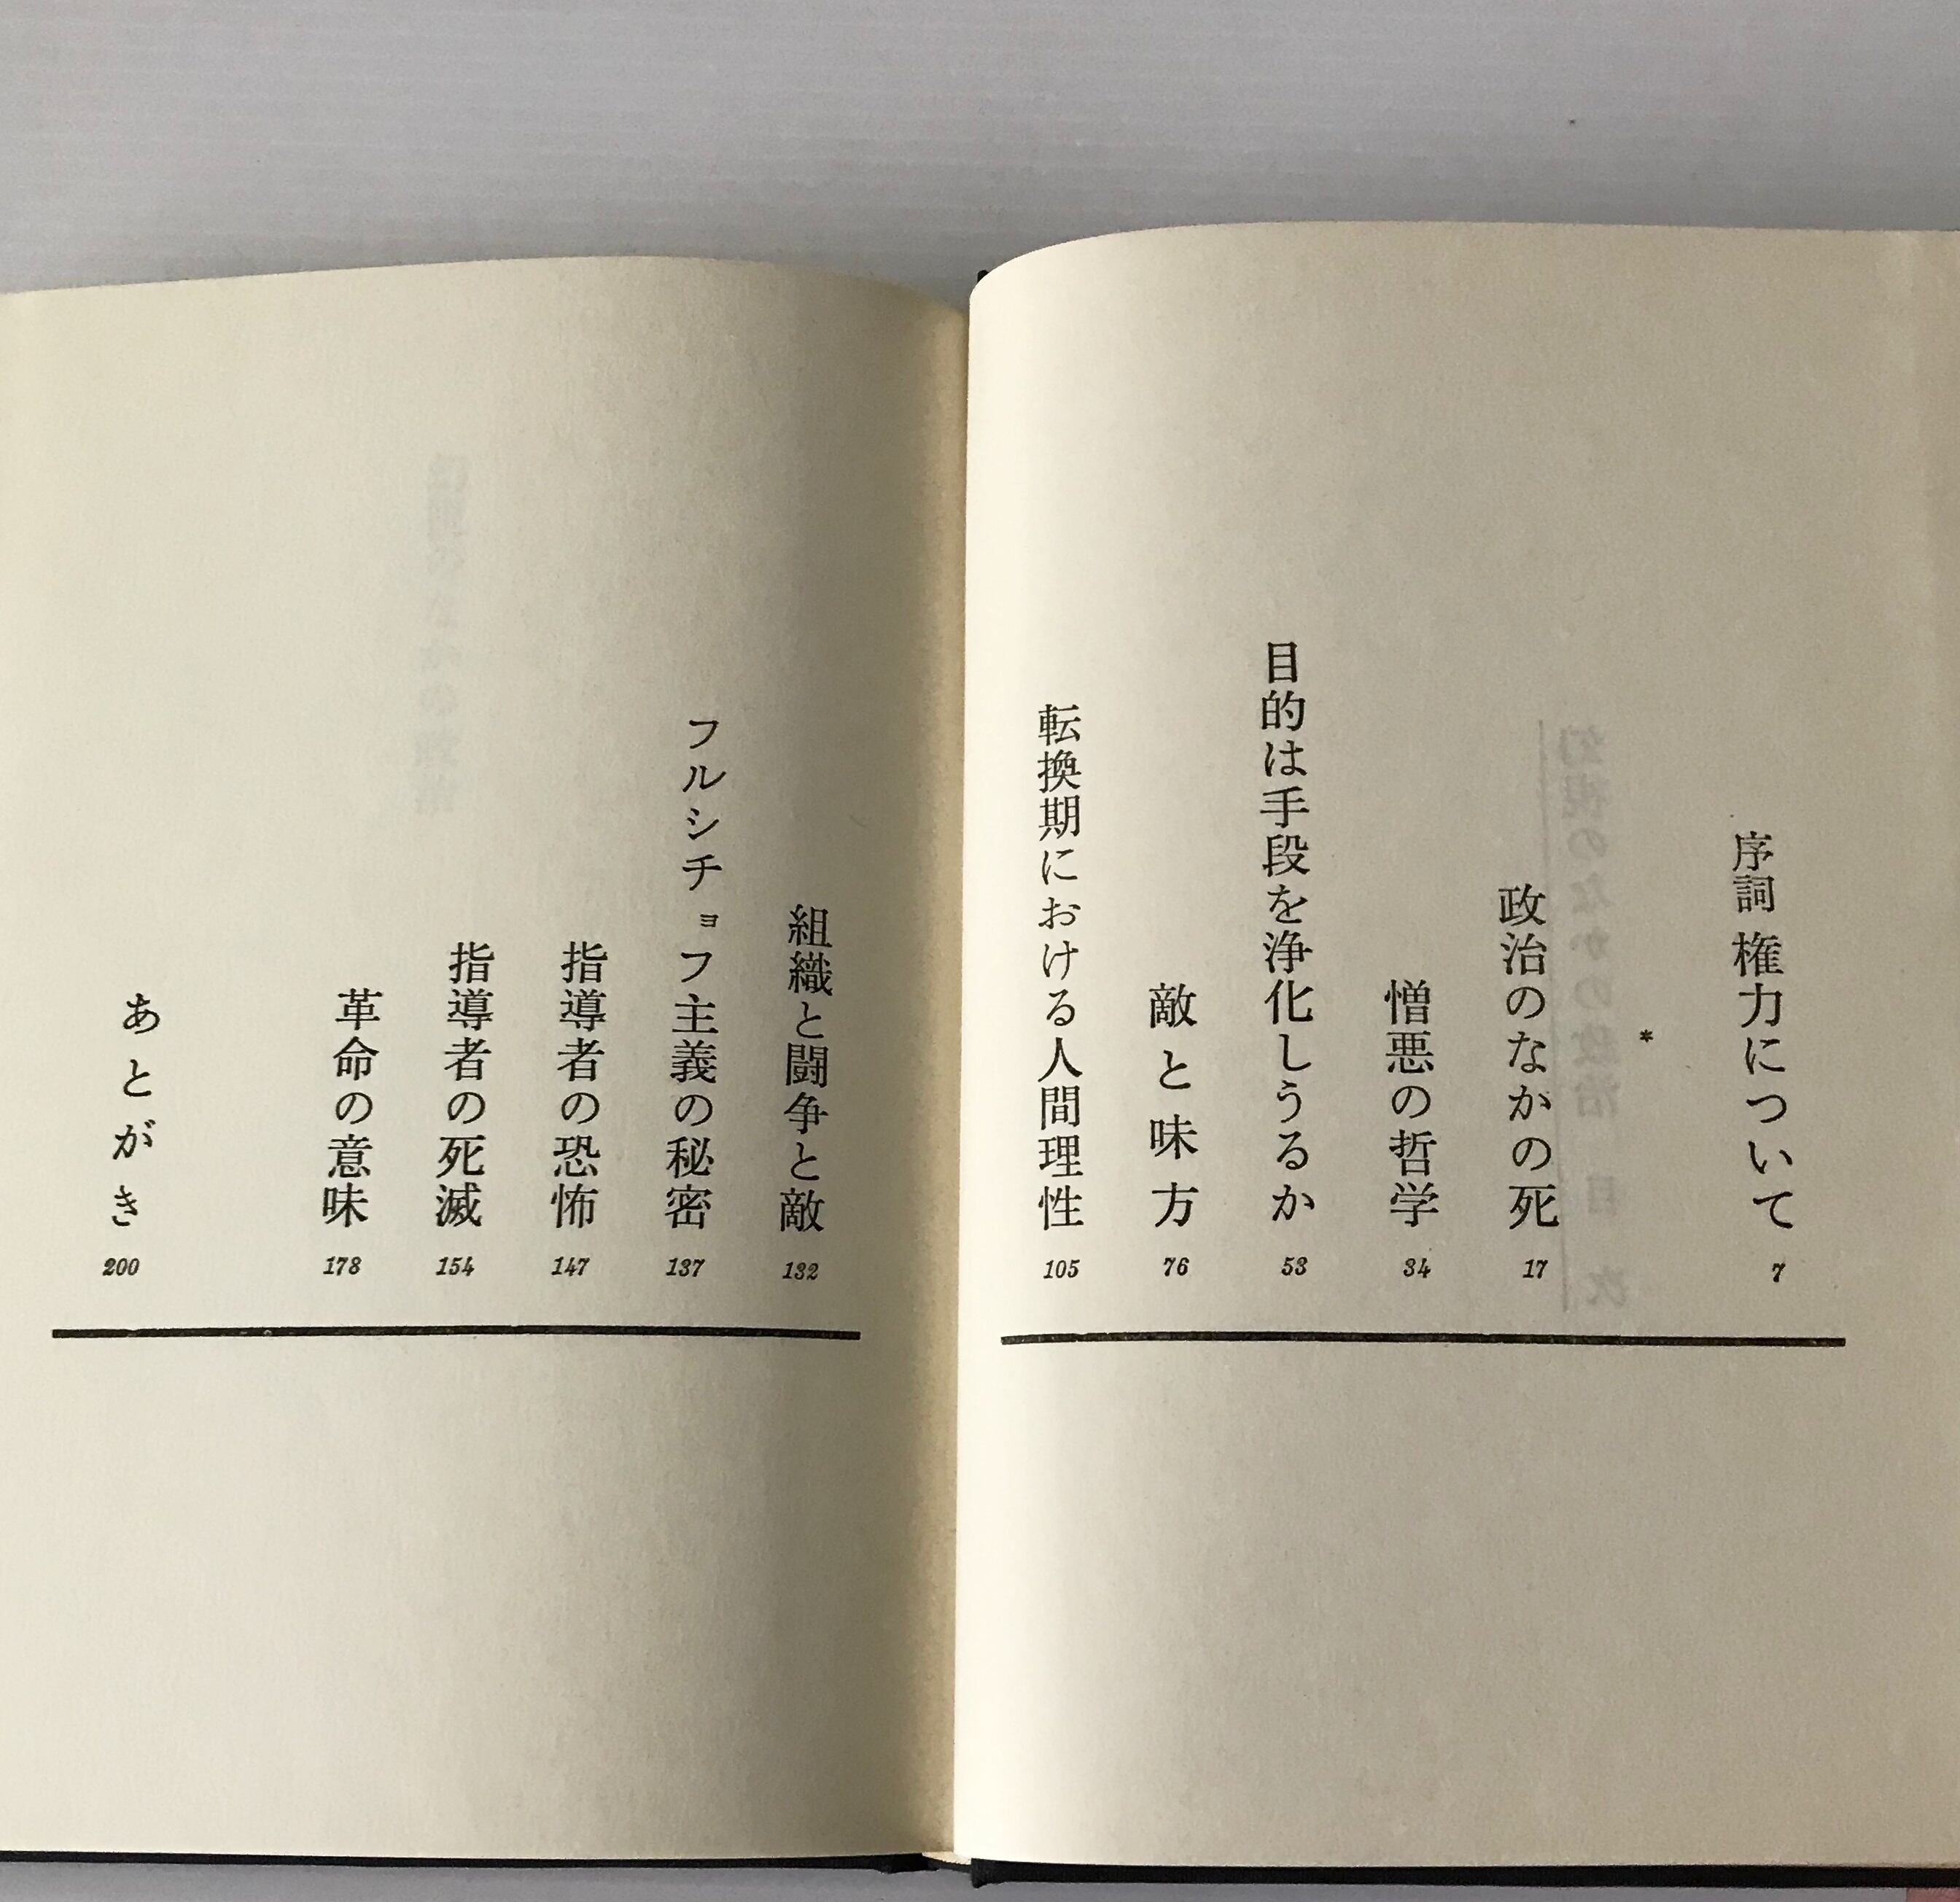 序詞 権力について 7
*
政治のなかの死 17
憎悪の哲学 34
目的は手段を浄化しうるか 53
敵と味方 76
転換期における人間理性 105
組織と闘争と敵 132
フルシチョフ主義の秘密 137
指導者の恐怖 147
指導者の死滅 154
革命の意味 178
あとがき 200